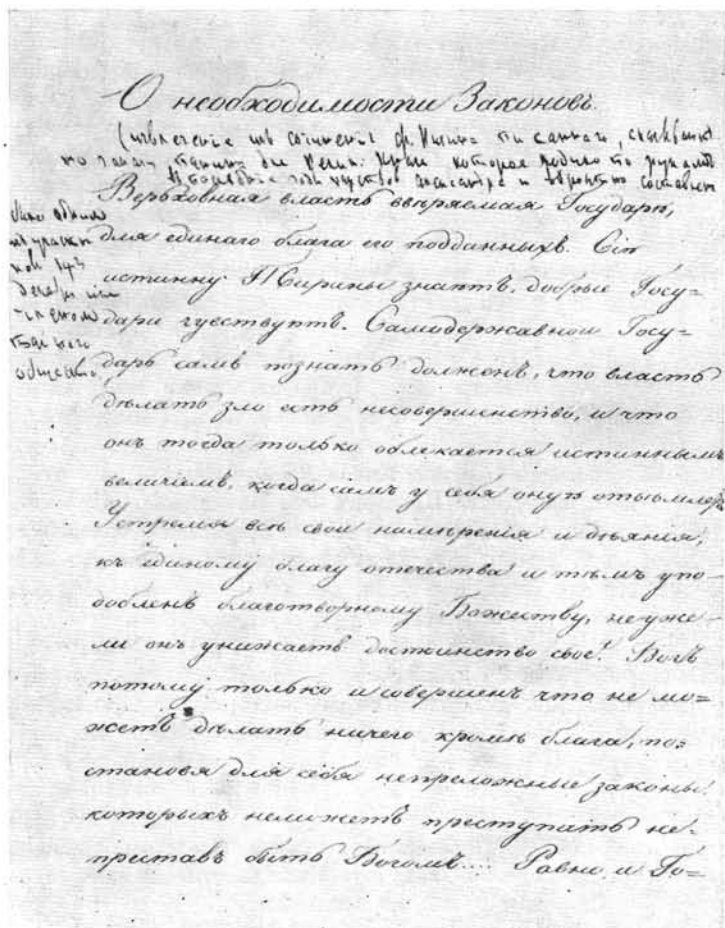 О необходимости Законовъ.
(извлеченіе изъ сочиненія Ф. Визина писаннаго,
для Велик. которое
царствов Александра и вѣроятно составлен
Верьховная власть ввѣряемая Государю,
для единаго блага его подданныхъ. Сію
истинну Тираны знаютъ, добрые Госу=
дари чувствуютъ. Самодержавной Госу=
дарь самъ познать долженъ, что власть
дѣлать зло есть несовершенство, и что
онъ тогда только облекается истиннымъ
величіемъ, когда самъ у себя оную отъемлетъ
Устремя всѣ свои намѣренія и дѣянія,
къ единому благу отечества и тѣмъ упо=
добленъ благотворному Божеству, неуже-
ли онъ унижаетъ достоинство свое! Богъ
потому только и совершенъ что не мо=
жетъ дѣлать ничего кромѣ блага, по=
становя для себя непреложные законы,
которыхъ неможетъ преступить не=
приставъ быть Богомъ... Равно и Го=
однимъ
изъ
14з
декабр
членомъ
тайнаго
общества